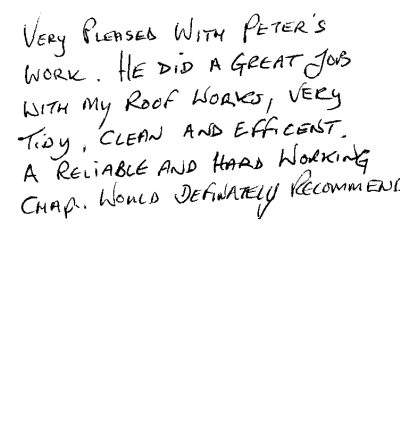 VERY PLEASED WITH PETER'S
WORK. HE DID A GREAT JOB
WITH MY ROOF WORKS, VERY
TIDY, CLEAN AND EFFICENT.
A RELIABLE AND HARD WORKING
CHAP.. WOULD DEFINATELY RECOMMEND